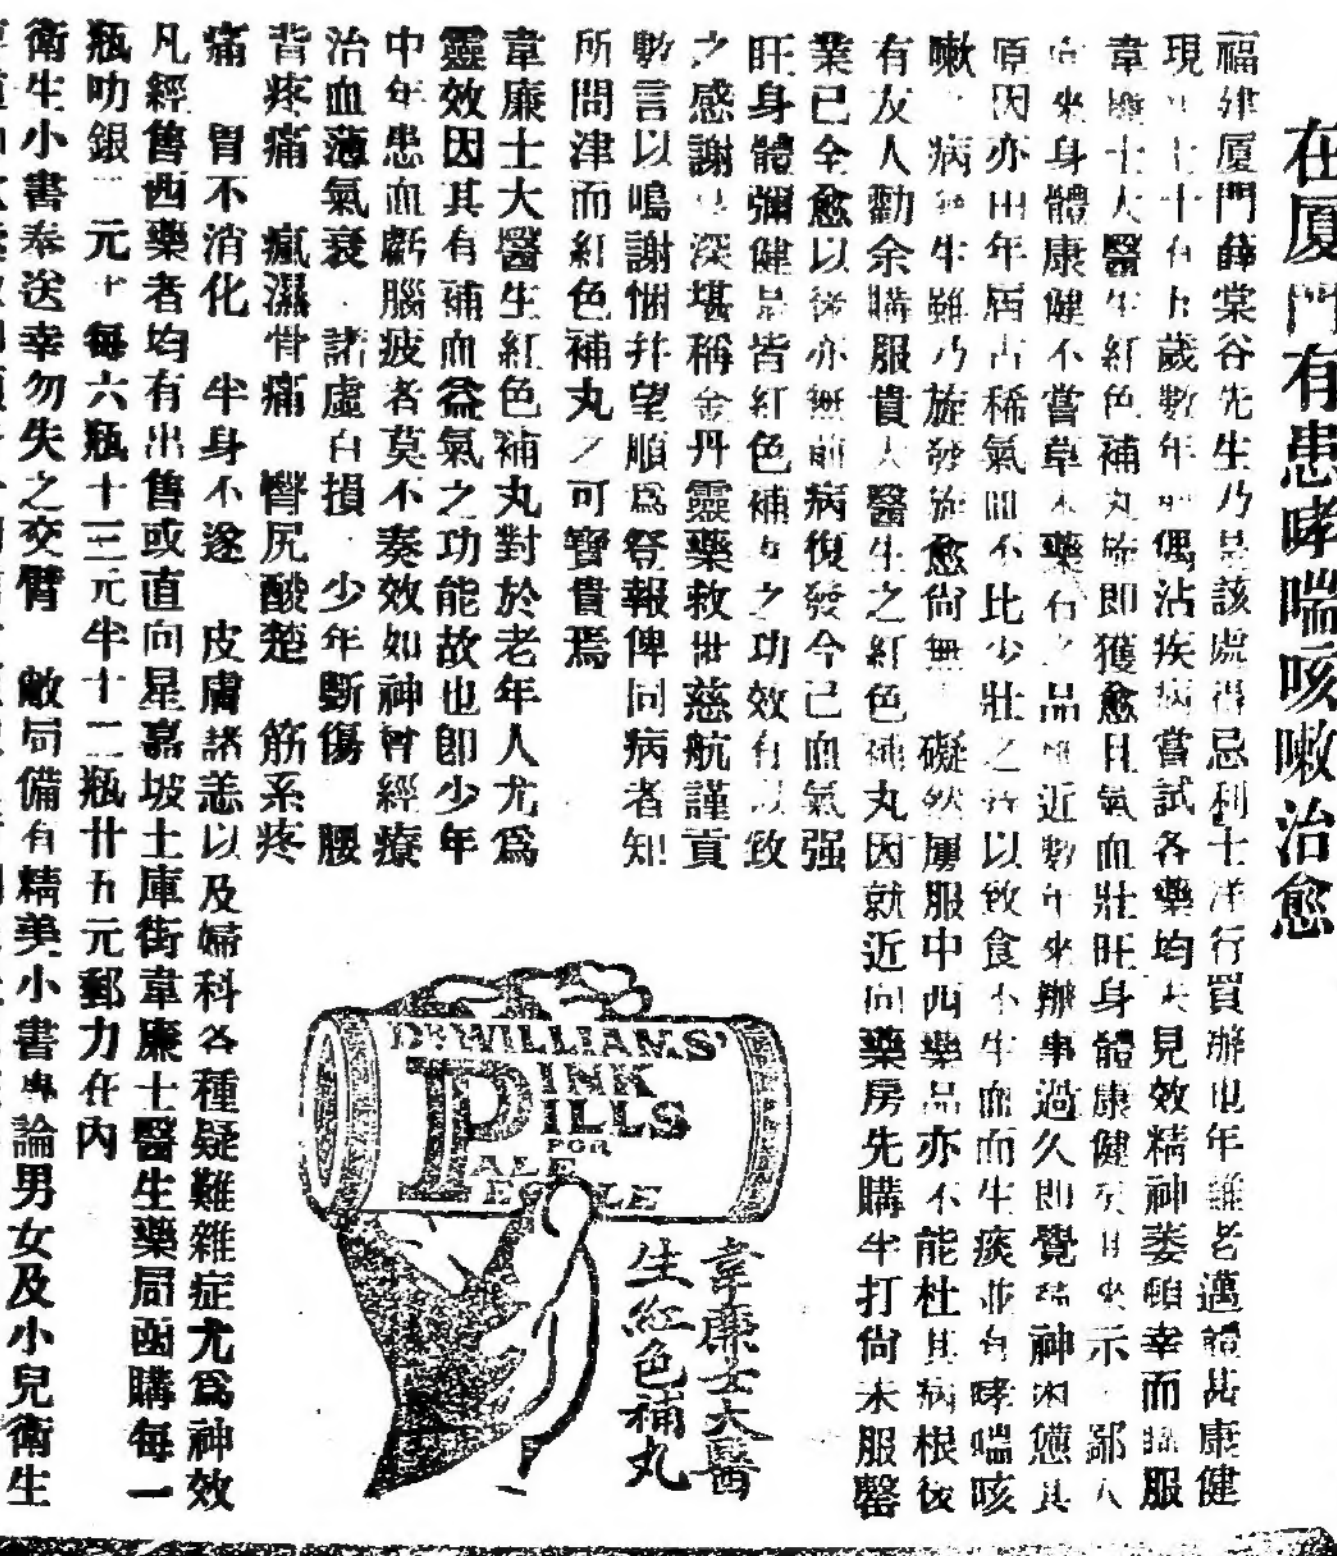 在厦門有患哮喘咳嗽治愈
福建厦門薛棠谷先生乃是該處得忌利士洋行買辦也年雖老邁體甚康健
現年七十有五歲數年前偶沾疾病嘗試各藥均未見效精神萎頓幸而購服
韋廉士大醫生紅色補丸旋即獲愈且氣血壯旺身體康健矣其來示 鄙人
向來身體康健不嘗草木藥石之品 近數年來辦事過久即覺精神困憊其
原因亦由年屆古稀氣血不比少壯之 以致食不生血而生痰並有哮喘咳
嗽 病 生雖乃旋發旋愈尙無 礙然屢服中西藥品亦不能杜其病根後
有友人勸余購服貴大醫生之紅色補丸因就近向藥房先購半打尙未服罄
業已全愈以後亦無前病復發今已血氣强
旺身體彌健是皆紅色補丸之功效有以致
之感謝 深堪稱金丹靈藥救世慈航謹貢
數言以鳴謝悃并望順爲登報俾同病者知
所問津而紅色補丸之可寶貴焉
韋廉士大醫生紅色補丸對於老年人尤爲
靈效因其有補血益氣之功能故也卽少年
中年患血虧腦疲者莫不奏效如神曾經療
治血薄氣衰 諸虛百損 少年斲傷 腰
背疼痛 瘋濕骨痛 臀尻酸楚 筋系疼
痛 胃不消化 半身不遂 皮膚諸恙以及婦科各種疑難雜症尤爲神效
凡經售西藥者均有出售或直向星嘉坡土庫街韋廉士醫生藥局函購每一
瓶叻銀二元 每六瓶十三元半十二瓶廿五元郵力在內
衛生小書奉送幸勿失之交臂 敝局備有精美小書專論男女及小兒衛生
DR WILLIAMS'
PINK
PILLS
FOR
PALE
PEOPLE
韋廉士大醫
生紅色補丸